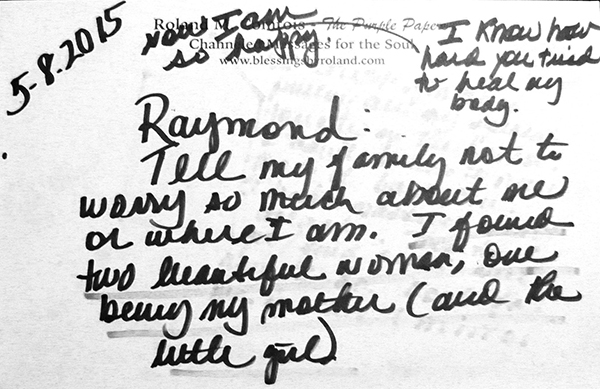 5-8.2015
Roland M. Comtois - The Purple Papers
Channeled Messages for the Soul
www.blessingsbyroland.com
now I am
so happy
I know how
hard you tried
to heal my
body.
Raymond:
Tell my family not to
worry so much about me
or where I am. I found
two beautiful woman, one
being my mother (and the
little girl)